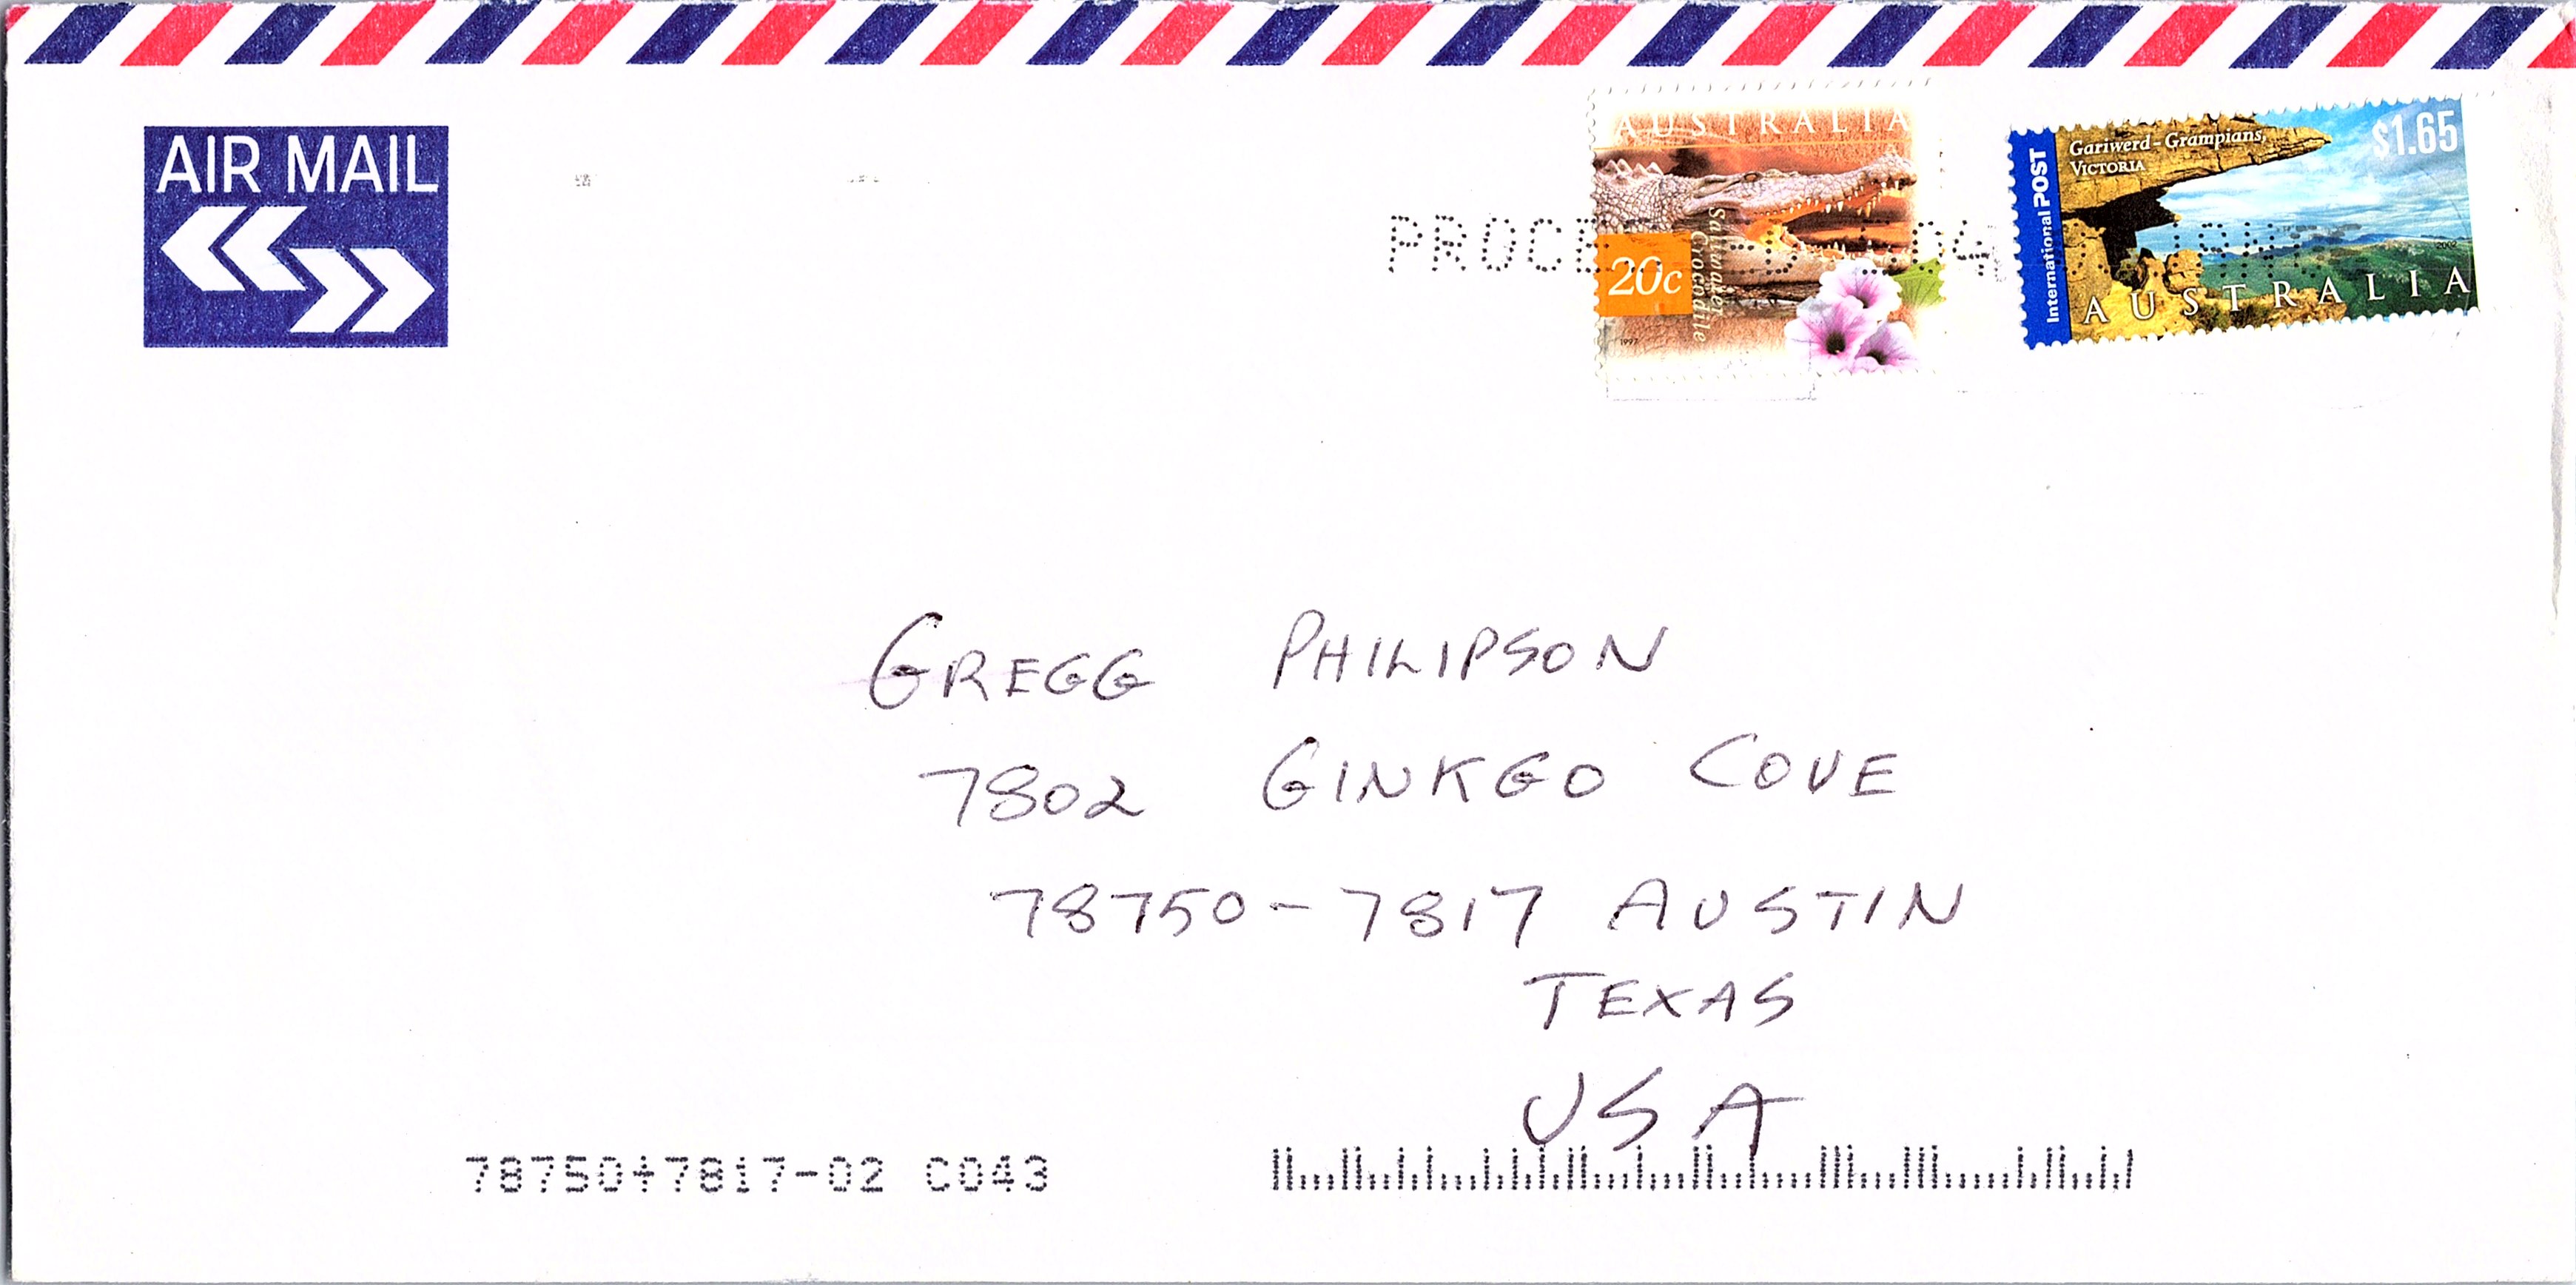 AIR MAIL
AUSTRALIA
20c
Saltwater
Crocodile
1997
International POST
Gariwerd - Grampians,
VICTORIA
$1.65
2002
AUSTRALIA
GREGG PHILIPSON
7802 GINKGO COVE
78750-7817 AUSTIN
TEXAS
USA
78750+7817-02 C043